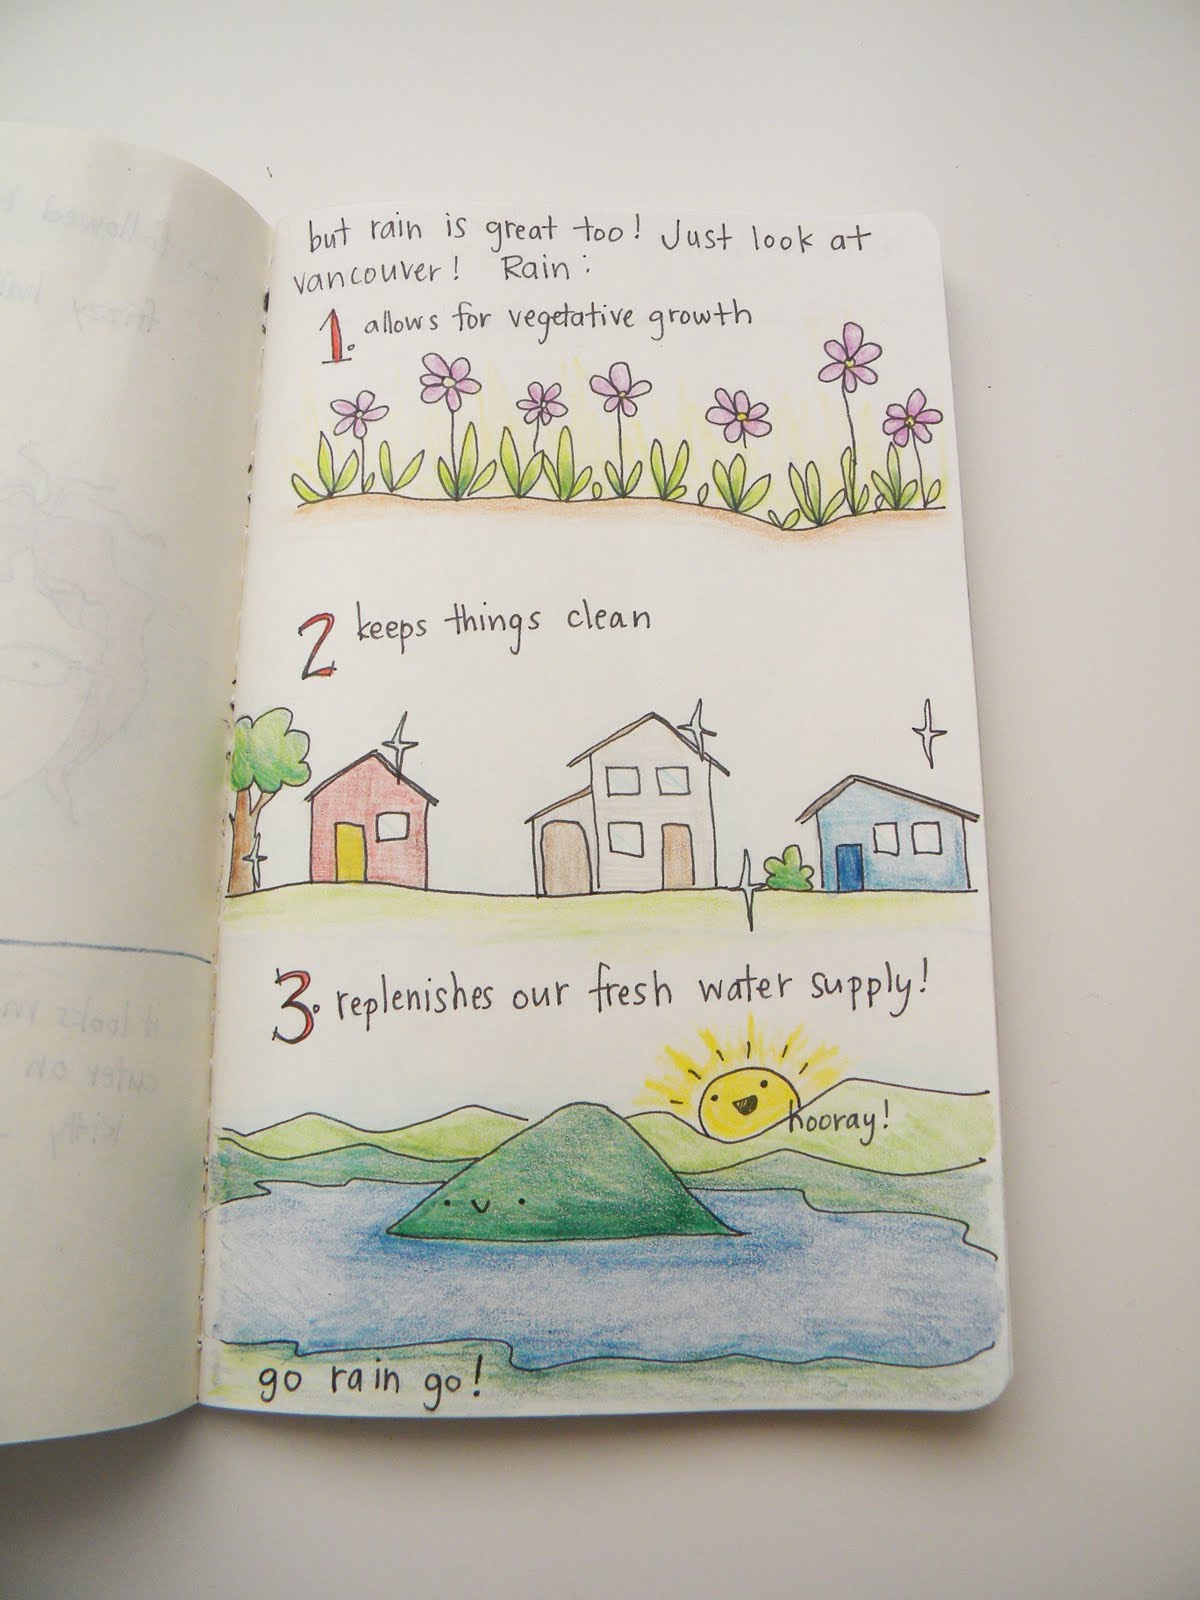 but rain is great too! Just look at
vancouver! Rain:
1. allows for vegetative growth
2 keeps things clean
3. replenishes our fresh water supply!
hooray!
go rain go!